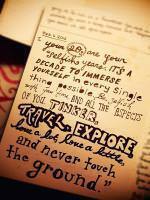 "your 20s are your
'selfish' years. IT'S A
DECADE TO IMMERSE
YOURSELF in every single
thing possible. Be selfish
with your time AND ALL THE ASPECTS
OF YOU. TINKER,
TRAVEL, EXPLORE
love a lot, love a little,
and never touch
the ground."